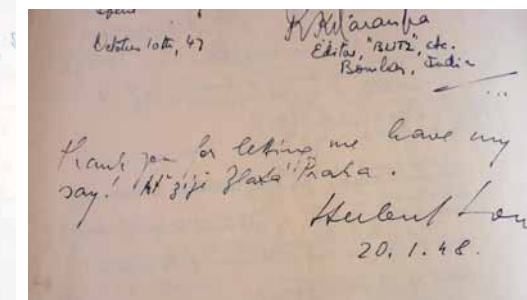 October 10th, 47
Editor, "BLITZ", etc.
Bombay, India
Thank you for letting me have my
say! "Ať žije Zlatá Praha".
Herbert Lom
20. 1. 48.